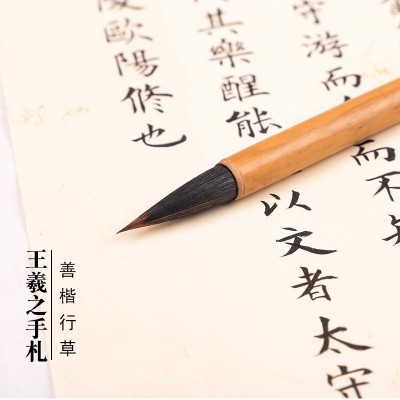 守游而 而不知
其樂醒能 以文者太守
陵歐陽修也
王羲之手札
善楷行草